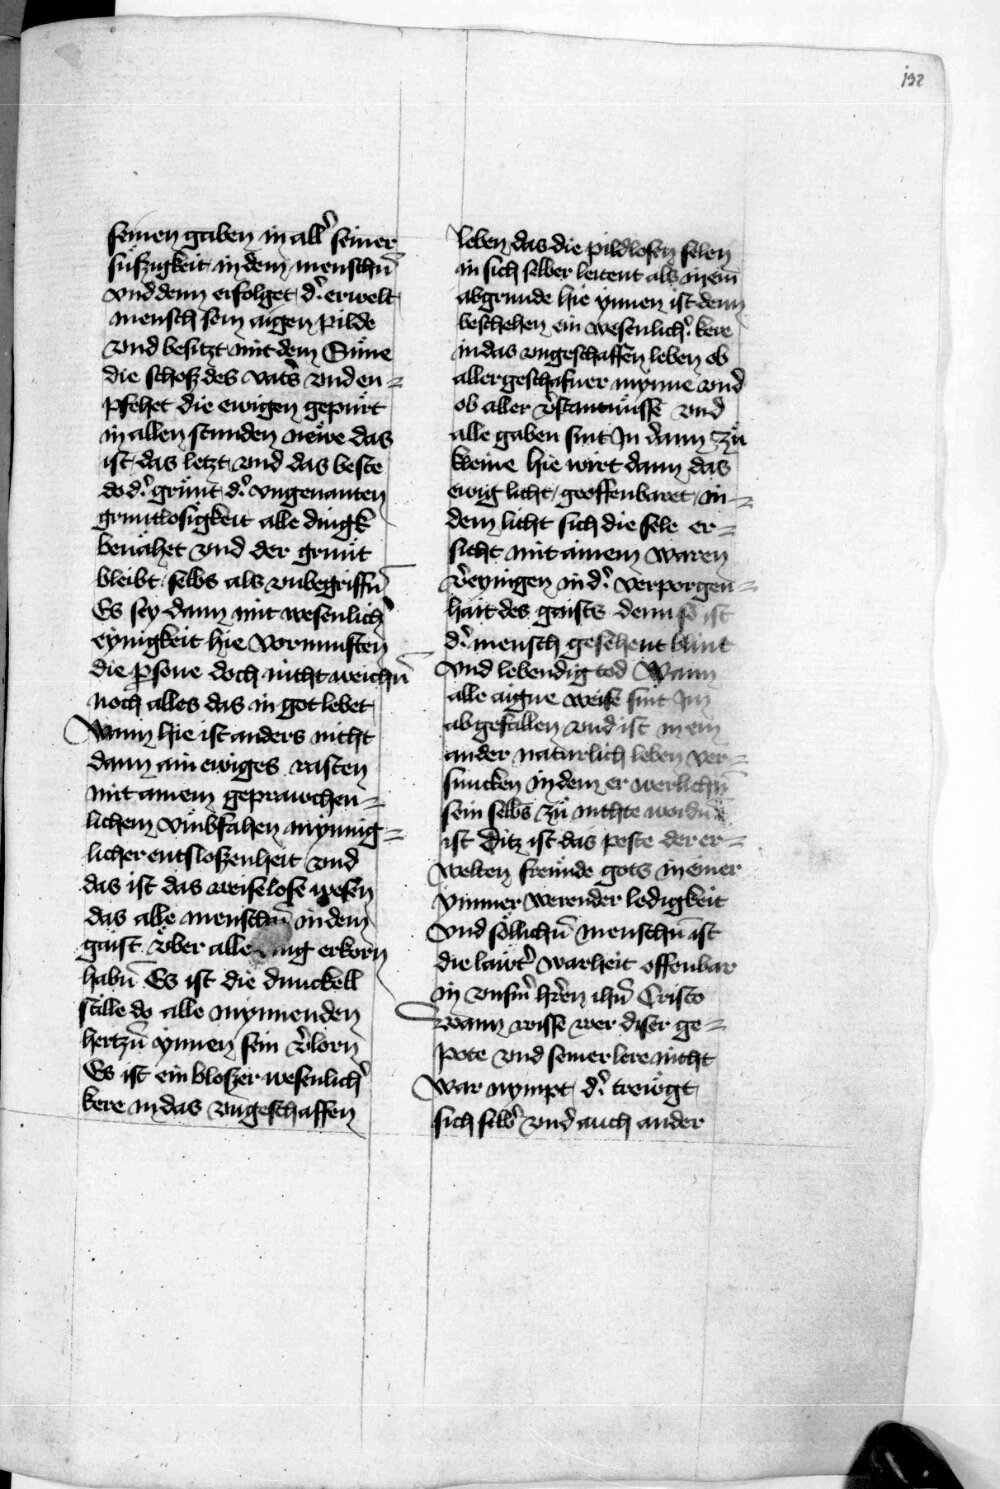 132
seinen gaben in all᷒ seiner
süßzigkeit in dem menschn̄
vnd denn erfolget d᷒ erwelt
mensch sein aigen pilde
vnd besitzt mit dem Sune
die schosz des vat᷒s vnd en=
pfehet die ewigen gepürt
in allen stunden newe das
ist das letzt vnd das beste
do d᷒ grunt d᷒ vngenanten
gruntlosigkeit alle dingk
benähet vnd der grunt
bleibt selbs als vnbegriffn̄
Es sey dann mit wesenlich᷒
eynigkeit hie vornunften
die p̱sone doch nicht weichn̄
noch alles das in got lebet
Wann hie ist anders nicht
dann ain ewiges rasten
mit ainem geprawchen=
lichem vmbfahen mynnig=
licher entsloszenheit vnd
das ist das weiselose wesen
das alle menschn̄ in dem
gaist über alle ding erkorn
habn̄ Es ist die dunckell
stille do alle mynnenden
hertzn̄ ynnen sein v᷒lorn
Es ist ein bloszer wesenlich᷒
kere in das vngeschaffen
leben das die pildlosen selen
in sich selber leitent als in ein
abgrunde hie ynnen ist denn
beschehen ein wesenlich᷒ kere
in das vngeschaffen leben ob
aller geschafner mynne vnd
ob aller v᷒stantnüsse vnd
alle gaben sint In dann zu
kleine hie wirt dann das
ewig licht geoffenbaret in=
dem licht sich die sele er=
sicht mit ainem waren
v᷒eynigen in d᷒ verporgen=
hait des gaists denn so ist
d᷒ mensch gesehent blint
vnd lebendig tod Wann
alle aigne weise sint Im
abgefallen vnd ist in ein
ander naturlich leben ver=
suncken in dem er werlichn̄
sein selbs zu nichte wordn̄
ist Ditz ist das peste der er=
welten freunde gots in einer
ymmer werender ledigkeit
Vnd söllichn̄ menschn̄ ist
die lawt᷒ warheit offenbar
in vnsm̄ hr̄en ihū Cristo
Wann wisse wer diser ge=
pote vnd seiner lere nicht
war nympt d᷒ treugt
sich selb᷒ vnd auch ander